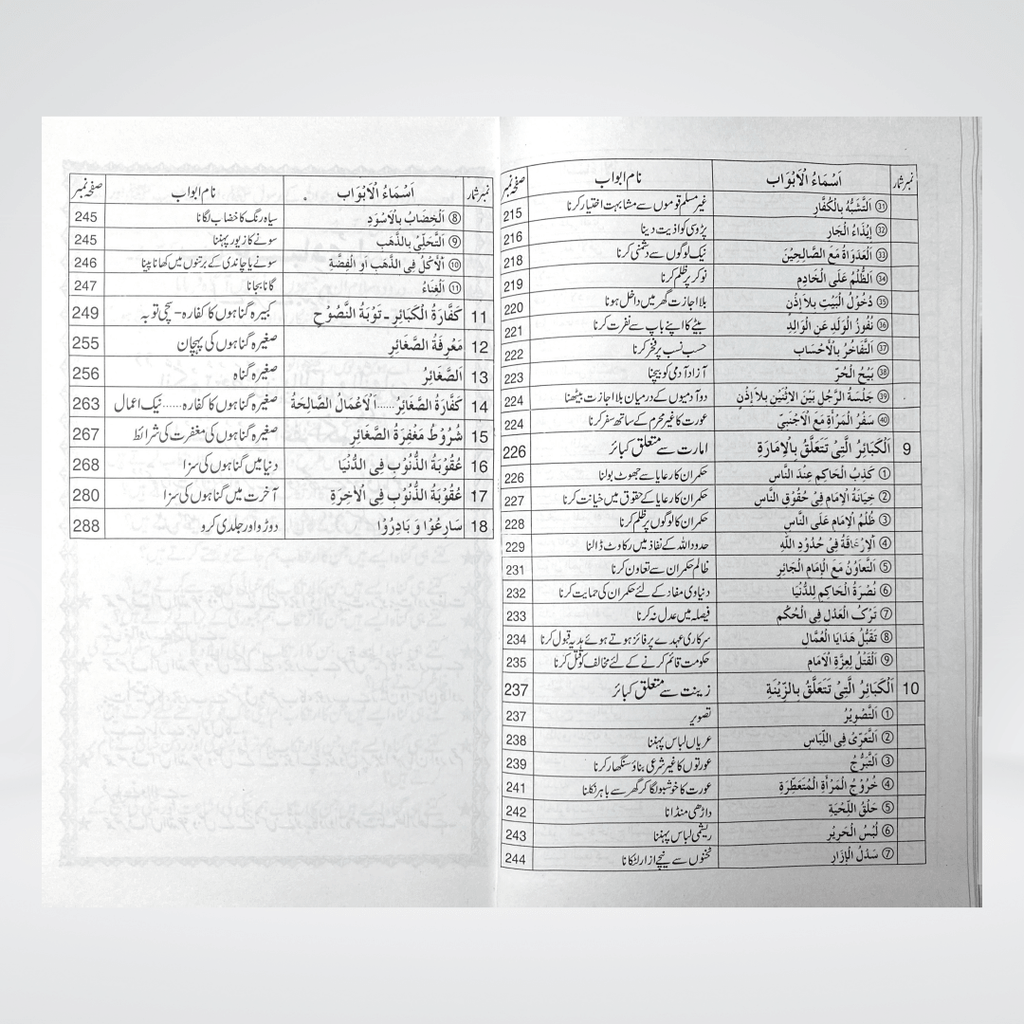 نمبرشمار اَسْمَاءُ الْاَبْوَاب نام ابواب صفحہ نمبر
㉛ اَلتَّشَبُّهُ بِالْكُفَّارِ غیر مسلم قوموں سے مشابہت اختیار کرنا 215
㉜ اِيْذَاءُ الْجَارِ پڑوسی کو اذیت دینا 216
㉝ اَلْعَدَوَاةُ مَعَ الصَّالِحِيْنَ نیک لوگوں سے دشمنی کرنا 218
㉞ اَلظُّلْمُ عَلَى الْخَادِمِ نوکر پر ظلم کرنا 219
㉟ دُخُوْلُ الْبَيْتِ بِلاَ اِذْنٍ بلا اجازت گھر میں داخل ہونا 220
㊱ نُفُوْزُ الْوَلَدِ عَنِ الْوَالِدِ بیٹے کا اپنے باپ سے نفرت کرنا 221
㊲ اَلتَّفَاخُرُ بِالْاَحْسَاب حسب نسب پر فخر کرنا 222
㊳ بَيْحُ الْحُرّ آزاد آدمی کو بیچنا 223
㊴ جَلْسَةُ الرَّجُلِ بَيْنَ الْاِثْنَيْنِ بِلاَ اِذْنٍ دو آدمیوں کے درمیان بلا اجازت بیٹھنا 224
㊵ سَفَرُ الْمَرْأَةِ مَعَ الْاَجْنَبِيّ عورت کا غیر محرم کے ساتھ سفر کرنا 224
9 اَلْكَبَائِرُ الَّتِيْ تَتَعَلَّقُ بِالْاِمَارَةِ امارت سے متعلق کبائر 226
① كَذِبُ الْحَاكِمِ عِنْدَ النَّاسِ حکمران کا رعایا سے جھوٹ بولنا 226
② خِيَانَةُ الْاِمَامِ فِيْ حُقُوْقِ النَّاسِ حکمران کا رعایا کے حقوق میں خیانت کرنا 227
③ ظُلْمُ الْاِمَامِ عَلَى النَّاسِ حکمران کا لوگوں پر ظلم کرنا 228
④ اَلْاِرْعَاقَةُ فِيْ حُدُوْدِ اللّٰهِ حدود اللہ کے نفاذ میں رکاوٹ ڈالنا 229
⑤ اَلتَّعَاوُنُ مَعَ الْاِمَامِ الْجَائِرِ ظالم حکمران سے تعاون کرنا 231
⑥ نُصْرَةُ الْحَاكِمِ لِلدُّنْيَا دنیاوی مفاد کے لئے حکمران کی حمایت کرنا 232
⑦ تَرْكُ الْعَدْلِ فِى الْحُكْمِ فیصلہ میں عدل نہ کرنا 233
⑧ تَقَبُّلُ هَدَايَا الْعُمَّالِ سرکاری عہدے پر فائز ہوتے ہوئے ہدیہ قبول کرنا 234
⑨ اَلْقَتْلُ لِعِزَّةِ الْاِمَامِ حکومت قائم کرنے کے لئے مخالف کو قتل کرنا 235
10 اَلْكَبَائِرُ الَّتِيْ تَتَعَلَّقُ بِالزِّيْنَةِ زینت سے متعلق کبائر 237
① اَلتَّصْوِيْرُ تصویر 237
② اَلتَّعَرِّىْ فِى اللِّبَاسِ عریاں لباس پہننا 238
③ اَلتَّبَرُّجُ عورتوں کا غیر شرعی بناؤ سنگھار کرنا 239
④ خُرُوْجُ الْمَرْأَةِ الْمُتَعَطِّرَةِ عورت کا خوشبو لگا کر گھر سے باہر نکلنا 241
⑤ حَلْقُ اللِّحْيَةِ داڑھی منڈانا 242
⑥ لُبْسُ الْحَرِيْرِ ریشمی لباس پہننا 243
⑦ سَدْلُ الْاِزَارِ ٹخنوں سے نیچے ازار لٹکانا 244
نمبرشمار اَسْمَاءُ الْاَبْوَاب نام ابواب صفحہ نمبر
⑧ اَلْخِضَابُ بِالْاَسْوَدِ سیاہ رنگ کا خضاب لگانا 245
⑨ اَلتَّحَلِّيْ بِالذَّهَب سونے کا زیور پہننا 245
⑩ اَلْاَكْلُ فِى الذَّهَبِ اَوِ الْفِضَّةِ سونے یا چاندی کے برتنوں میں کھانا پینا 246
⑪ اَلْغِنَاءُ گانا بجانا 247
11 كَفَّارَةُ الْكَبَائِرِ ـ تَوْبَةُ النَّصُوْحِ کبیرہ گناہوں کا کفارہ – سچی توبہ 249
12 مَعْرِفَةُ الصَّغَائِرِ صغیرہ گناہوں کی پہچان 255
13 اَلصَّغَائِرُ صغیرہ گناہ 256
14 كَفَّارَةُ الصَّغَائِرُ......اَلْاَعْمَالُ الصَّالِحَةُ صغیرہ گناہوں کا کفارہ......نیک اعمال 263
15 شُرُوْطُ مَغْفِرَةِ الصَّغَائِرِ صغیرہ گناہوں کی مغفرت کی شرائط 267
16 عُقُوْبَةُ الذُّنُوْبِ فِى الدُّنْيَا دنیا میں گناہوں کی سزا 268
17 عُقُوْبَةُ الذُّنُوْبِ فِى الْاٰخِرَةِ آخرت میں گناہوں کی سزا 280
18 سَارِعُوْا وَ بَادِرُوْا دوڑو اور جلدی کرو 288